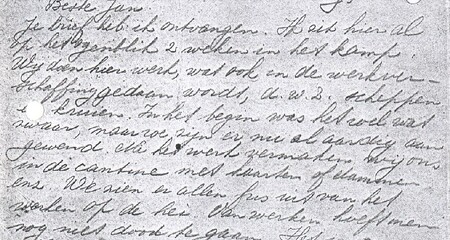 Beste Jan.
Je brief heb ik ontvangen. Ik zit hier al
op het ogenblik 2 weken in het kamp.
Wij doen hier werk, wat ook in de werkver-
schaffing gedaan wordt, d.w.z. scheppen
en kruien. In het begin was het wel wat
zwaar, maar we zijn er nu al aardig aan
gewend. Na het werk vermaken wij ons
in de cantine met kaarten of dammen
enz. We zien er allen fris uit van het
werken op de hei. Van werken hoeft men
nog niet dood te gaan. Het